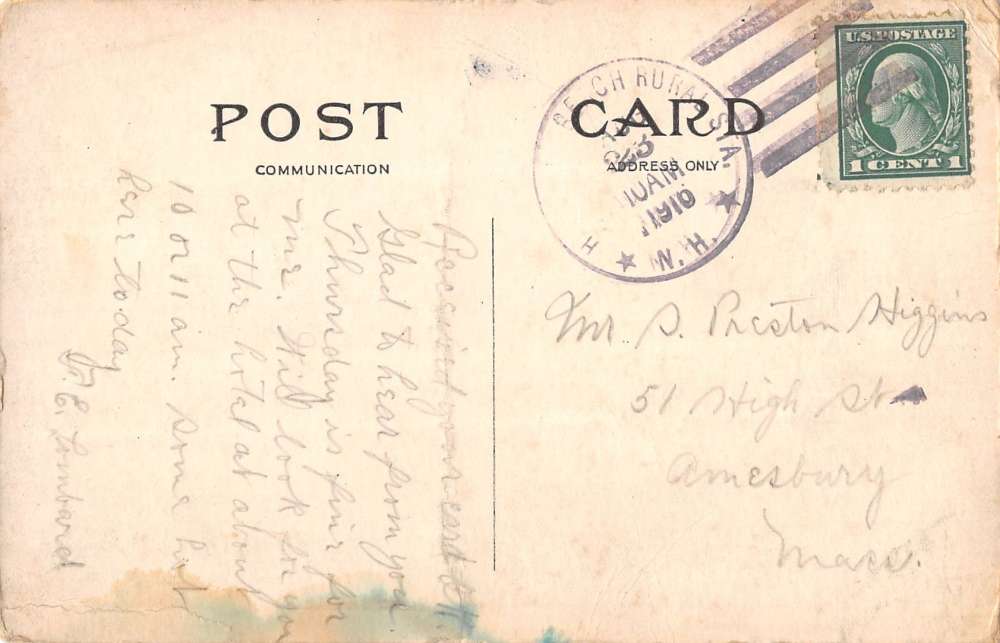 POST CARD
COMMUNICATION
ADDRESS ONLY
U.S. POSTAGE
1 CENT 1
BEACH RURAL STA.
23
10 AM
N.H.
H
Mr S. Preston Higgins
51 High St
Amesbury
Mass.
Received your card O.K.
Glad to hear from you.
Thursday is fine for
me. Will look for you
at the hotel at about
10 or 11 am. Some hot
here today
E. Lombard